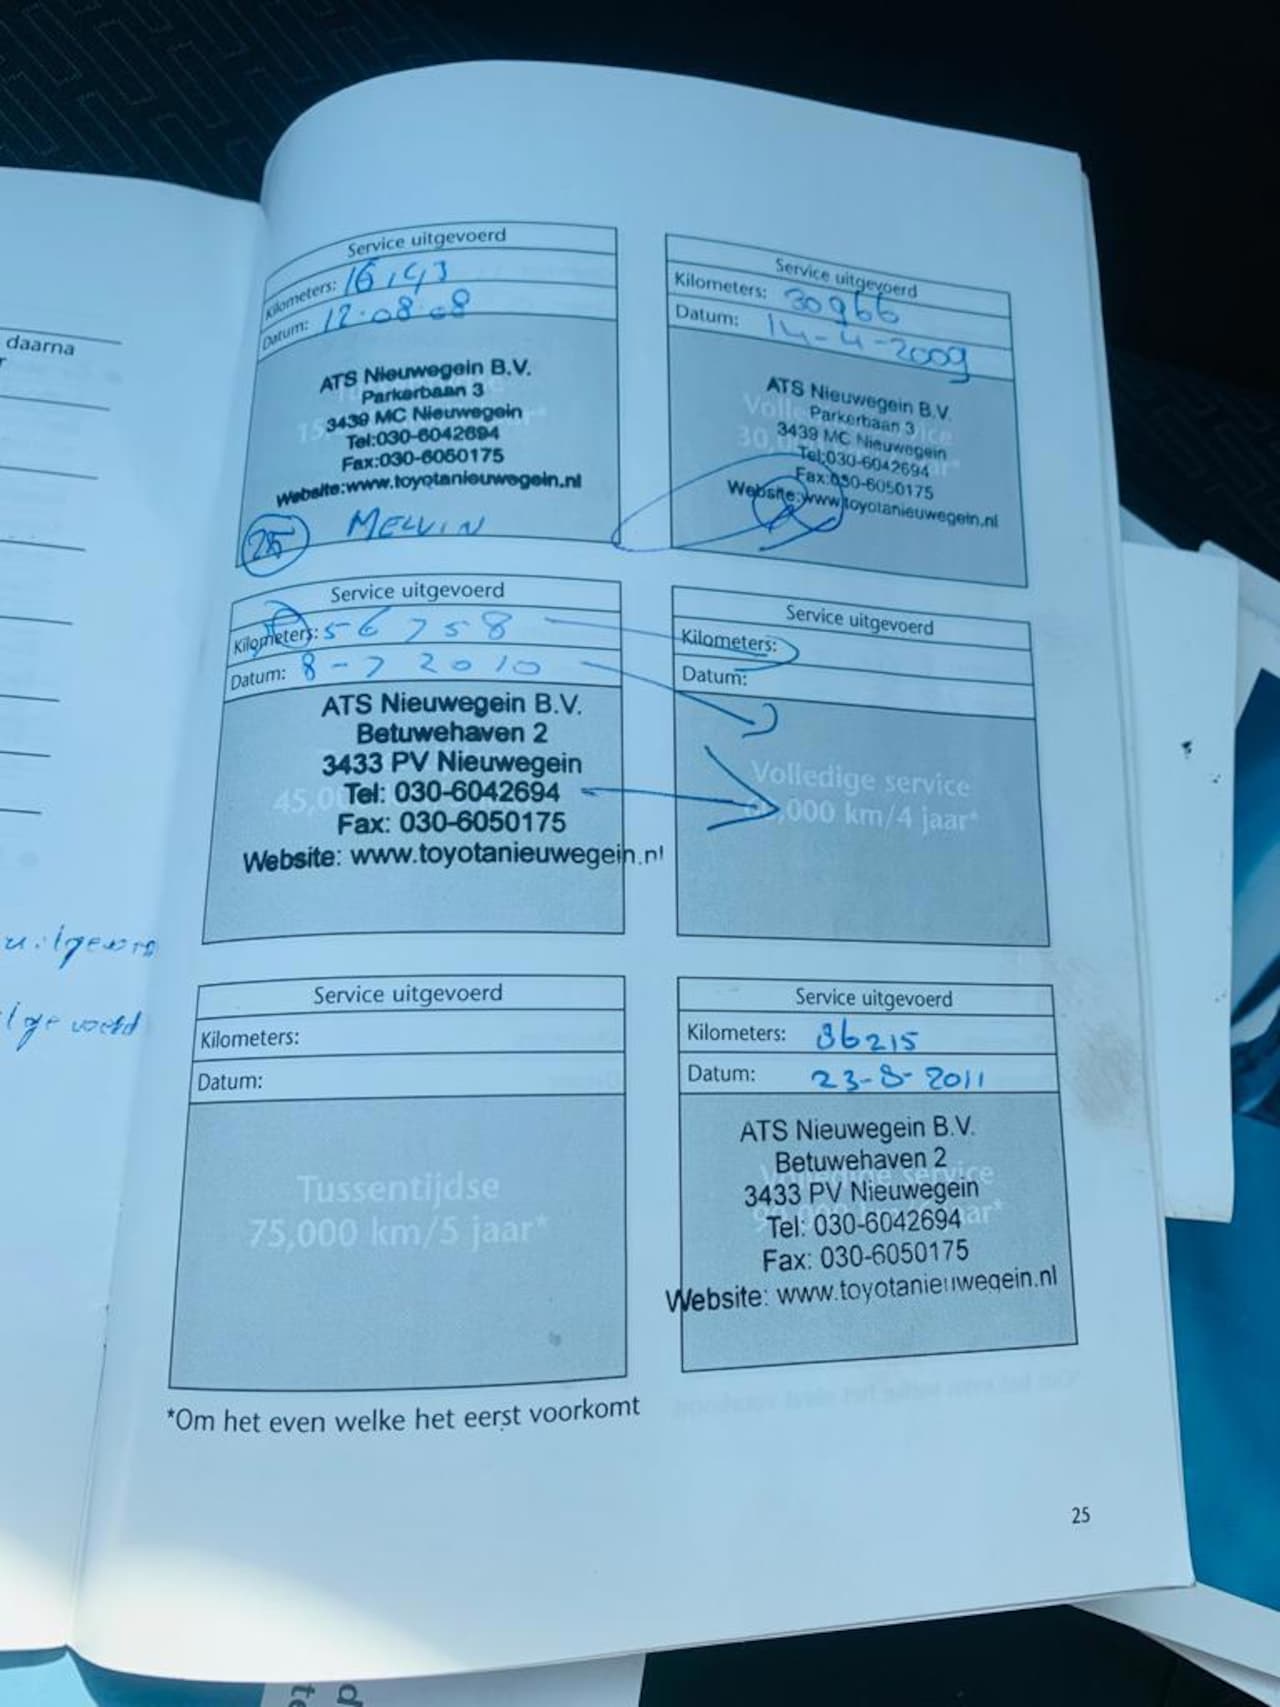 daarna
Service uitgevoerd
Kilometers: 16143
Datum: 12-08-08
ATS Nieuwegein B.V.
Parkerbaan 3
3439 MC Nieuwegein
Tel:030-6042694
Fax:030-6050175
Website:www.toyotanieuwegein.nl
25 MELVIN
Service uitgevoerd
Kilometers: 30966
Datum: 14-4-2009
ATS Nieuwegein B.V.
Parkerbaan 3
3439 MC Nieuwegein
Tel:030-6042694
Fax:030-6050175
Website:www.toyotanieuwegein.nl
Service uitgevoerd
Kilometers: 56758
Datum: 8-7 2010
ATS Nieuwegein B.V.
Betuwehaven 2
3433 PV Nieuwegein
Tel: 030-6042694
Fax: 030-6050175
Website: www.toyotanieuwegein.nl
Service uitgevoerd
Kilometers:
Datum:
Volledige service
km/4 jaar*
Service uitgevoerd
Kilometers:
Datum:
Tussentijdse
75,000 km/5 jaar*
Service uitgevoerd
Kilometers: 86215
Datum: 23-8-2011
ATS Nieuwegein B.V.
Betuwehaven 2
3433 PV Nieuwegein
Tel: 030-6042694
Fax: 030-6050175
Website: www.toyotanieuwegein.nl
*Om het even welke het eerst voorkomt
25